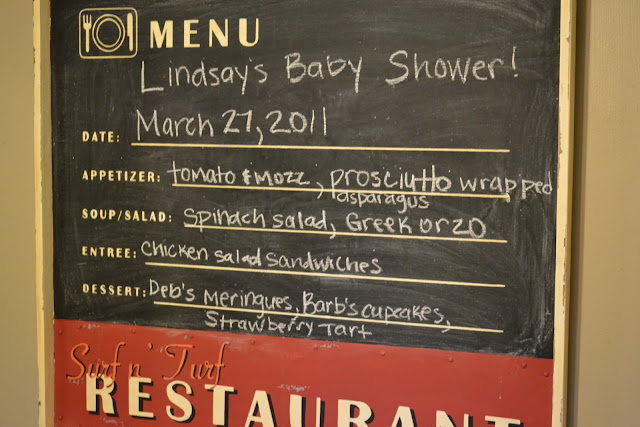 MENU
Lindsay's Baby Shower!
DATE: March 27, 2011
APPETIZER: tomato & mozz, prosciutto wrapped
asparagus
SOUP/SALAD: Spinach salad, Greek orzo
ENTREE: Chicken salad sandwiches
DESSERT: Deb's Meringues, Barb's cupcakes,
Strawberry Tart
Surf n' Turf
RESTAURANT